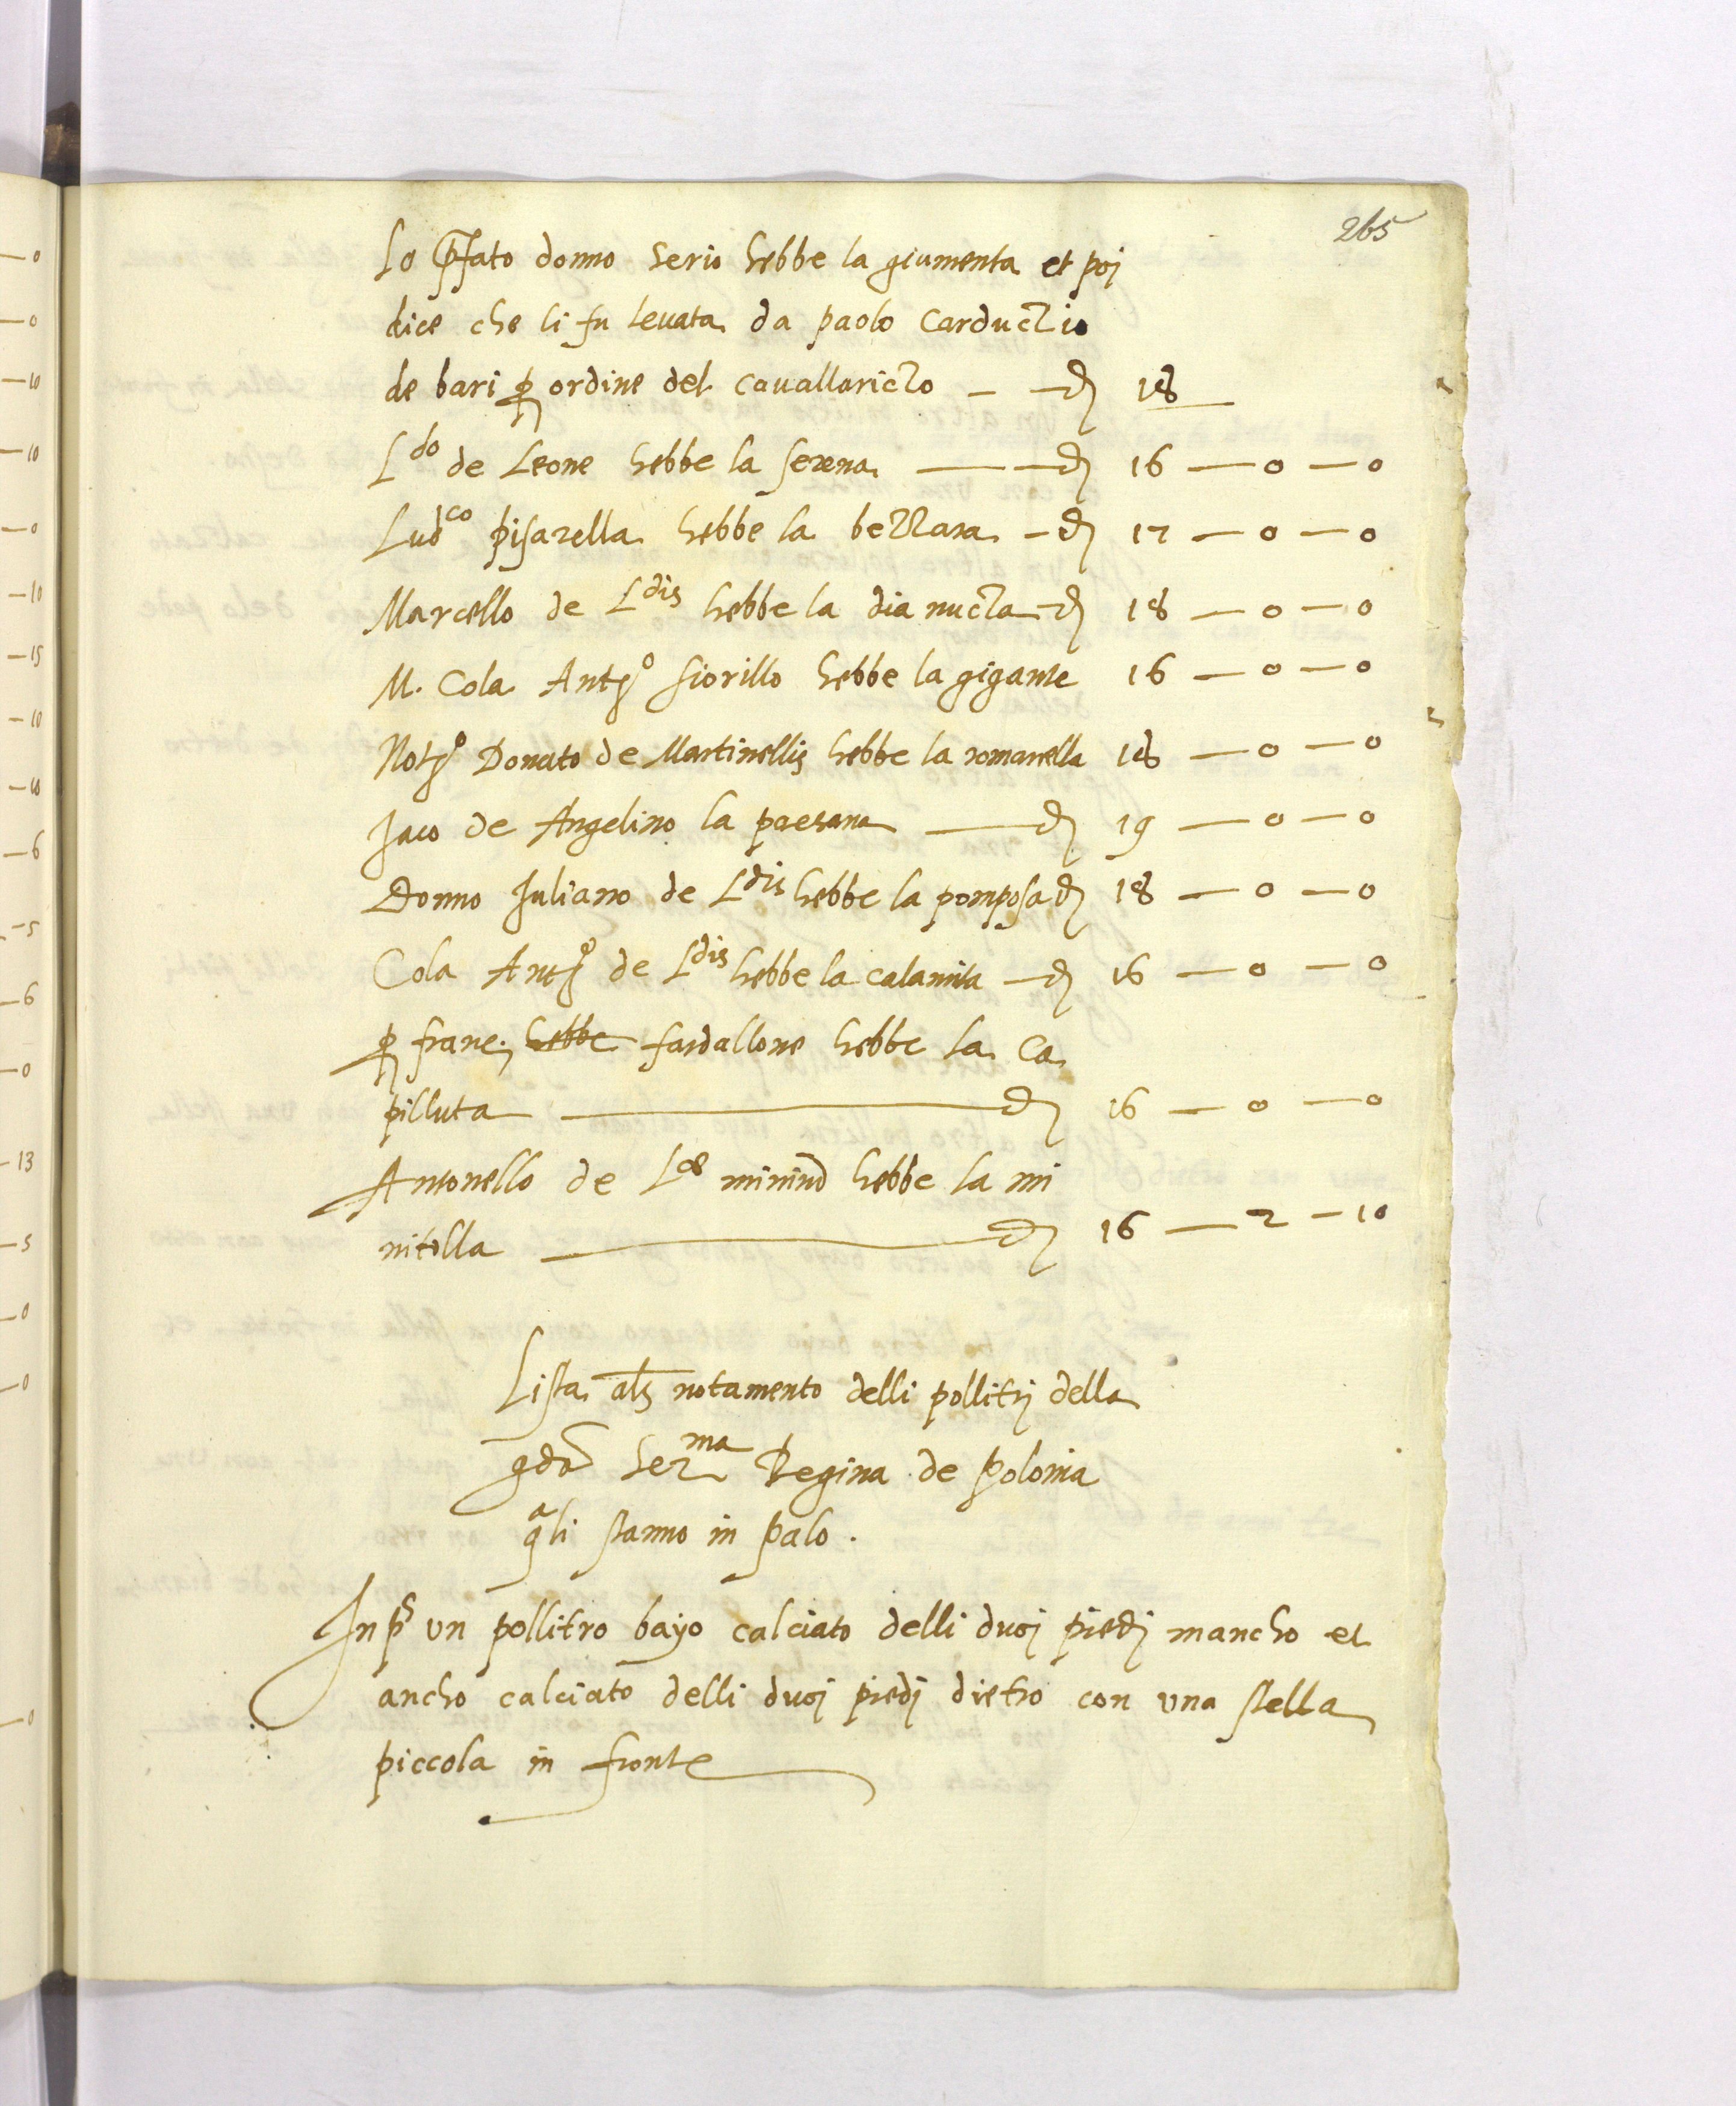 265
Lo p̄fato donno Serio hebbe la giumenta et poj
dice che li fu levata da paolo Carduczio
de bari p ordine del cavallariczo – – d 18
L.do de Leone hebbe la serena — — d 16 — 0 — 0
Lud.co pisarella hebbe la bezzara – d 17 — 0 — 0
Marcello de L.dis hebbe la dianucza – d 18 — 0 — 0
M. Cola Ant.o fiorillo hebbe la gigante 16 — 0 — 0
Not.o Donato de Martinellis hebbe la romanella 18 — 0 — 0
Jaco de Angelino la paesana — d 19 — 0 — 0
Donno Juliano de L.dis hebbe la pomposa d 18 — 0 — 0
Cola Ant.o de L.dis hebbe la calamita – d 16 — 0 — 0
p franc. hebbe fardallone hebbe la Ca
pilluta — d 16 — 0 — 0
Antonello de hebbe la mi
nitolla — d 16 — 2 — 10
Lista als notamento delli pollitrj della
qdā Ser.ma Regina de polonia
q.a li stanno in palo.
In p.s un pollitro bayo calciato delli duoj piedj mancho et
ancho calciato delli duoj piedj dietro con una stella
piccola in fronte
—0
—0
—10
—10
—0
—10
—15
—10
—10
—6
—5
—6
—0
—13
—5
—0
—0
—0